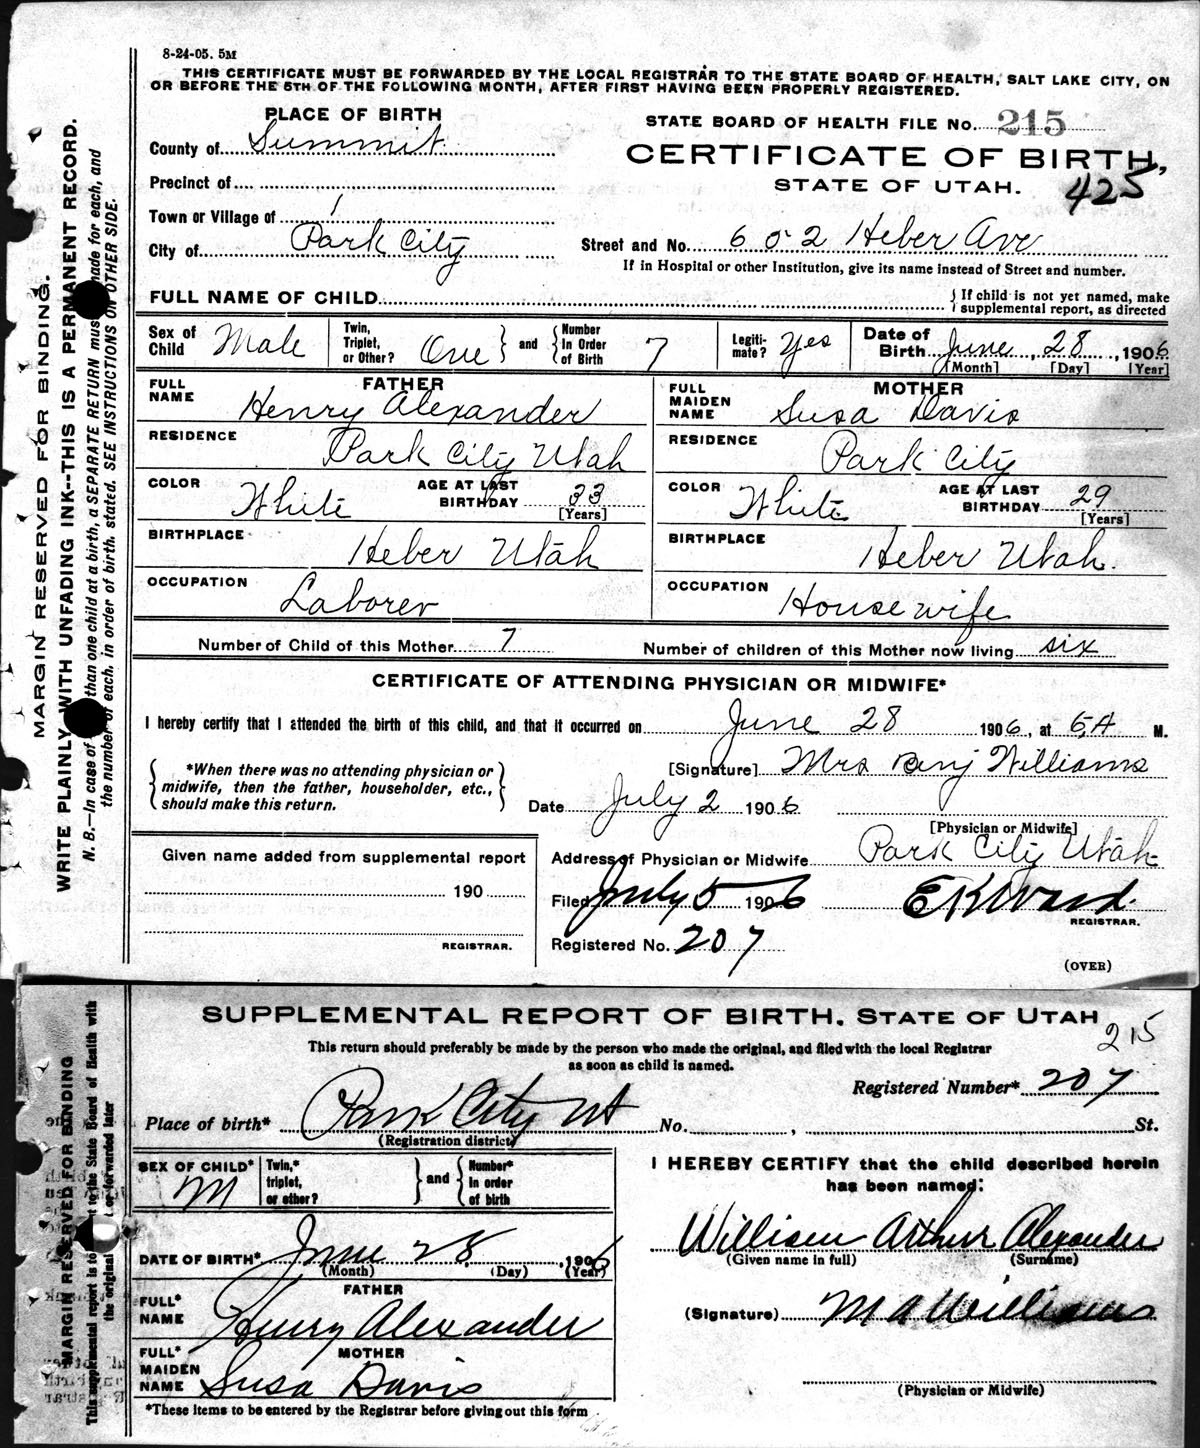 8-24-05. 5M
THIS CERTIFICATE MUST BE FORWARDED BY THE LOCAL REGISTRAR TO THE STATE BOARD OF HEALTH, SALT LAKE CITY, ON
OR BEFORE THE 5TH OF THE FOLLOWING MONTH, AFTER FIRST HAVING BEEN PROPERLY REGISTERED.
MARGIN RESERVED FOR BINDING.
WRITE PLAINLY WITH UNFADING INK--THIS IS A PERMANENT RECORD.
N. B.—In case of than one child at a birth, a SEPARATE RETURN must made for each, and
the number of each, in order of birth, stated. SEE INSTRUCTIONS ON OTHER SIDE.
PLACE OF BIRTH
County of Summit
Precinct of
Town or Village of
City of Park City
STATE BOARD OF HEALTH FILE No. 215
CERTIFICATE OF BIRTH,
STATE OF UTAH.
425
Street and No. 602 Heber Ave
If in Hospital or other Institution, give its name instead of Street and number.
FULL NAME OF CHILD
If child is not yet named, make
supplemental report, as directed
Sex of Child Male
Twin, Triplet, or Other? One and Number In Order of Birth 7
Legiti-mate? Yes
Date of Birth June, 28, 1906
[Month] [Day] [Year]
FATHER
FULL NAME Henry Alexander
RESIDENCE Park City Utah
COLOR White AGE AT LAST BIRTHDAY 33
[Years]
BIRTHPLACE Heber Utah
OCCUPATION Laborer
MOTHER
FULL MAIDEN NAME Susa Davis
RESIDENCE Park City
COLOR White AGE AT LAST BIRTHDAY 29
[Years]
BIRTHPLACE Heber Utah.
OCCUPATION Housewife
Number of Child of this Mother 7 Number of children of this Mother now living six
CERTIFICATE OF ATTENDING PHYSICIAN OR MIDWIFE*
I hereby certify that I attended the birth of this child, and that it occurred on June 28 1906, at 5 A M.
*When there was no attending physician or
midwife, then the father, householder, etc.,
should make this return.
[Signature] Mrs Benj Williams
Date July 2 1906
[Physician or Midwife]
Given name added from supplemental report
190
REGISTRAR.
Address of Physician or Midwife Park City Utah
Filed July 5 1906 E K Ward.
REGISTRAR.
Registered No. 207
(OVER)
MARGIN RESERVED FOR BINDING
This supplemental report is to t to the State Board of Health with
the original t or forwarded later
SUPPLEMENTAL REPORT OF BIRTH. STATE OF UTAH
215
This return should preferably be made by the person who made the original, and filed with the local Registrar
as soon as child is named.
Registered Number* 207
Place of birth* Park City Ut No. , St.
(Registration district)
SEX OF CHILD* M
Twin,* triplet, or other? and Number* in order of birth
DATE OF BIRTH* June 28, 1906
(Month) (Day) (Year)
FATHER
FULL* NAME Henry Alexander
MOTHER
FULL* MAIDEN NAME Susa Davis
*These items to be entered by the Registrar before giving out this form
I HEREBY CERTIFY that the child described herein
has been named:
William Arthur Alexander
(Given name in full) (Surname)
(Signature) M A Williams
(Physician or Midwife)